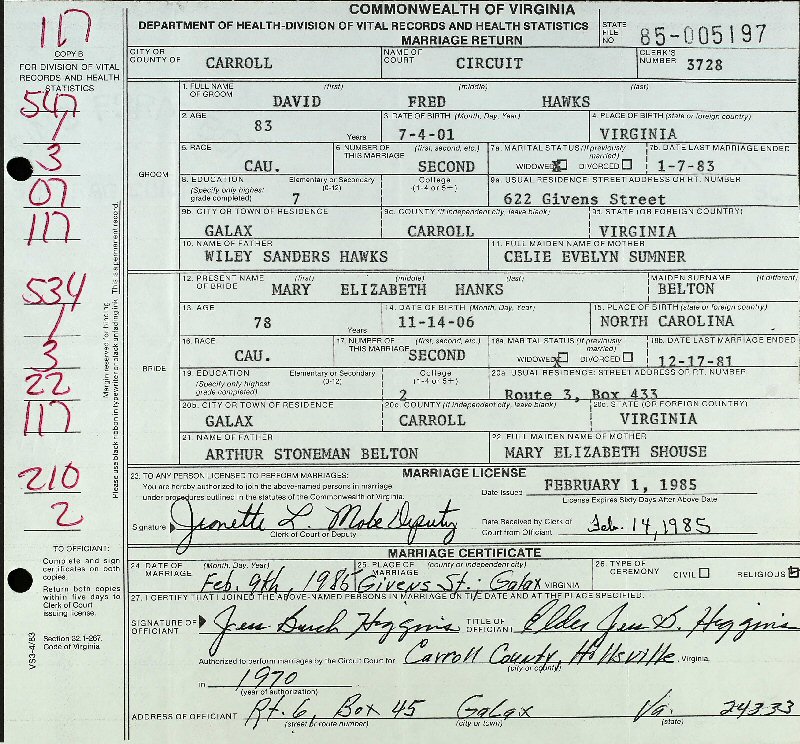 COMMONWEALTH OF VIRGINIA
DEPARTMENT OF HEALTH-DIVISION OF VITAL RECORDS AND HEALTH STATISTICS
MARRIAGE RETURN
STATE FILE NO 85-005197
117
COPY B
FOR DIVISION OF VITAL RECORDS AND HEALTH STATISTICS
CITY OR COUNTY OF CARROLL NAME OF COURT CIRCUIT CLERK'S NUMBER 3728
GROOM
1. FULL NAME OF GROOM (first) DAVID (middle) FRED (last) HAWKS
2. AGE 83 Years 3. DATE OF BIRTH (Month, Day, Year) 7-4-01 4. PLACE OF BIRTH (state or foreign country) VIRGINIA
5. RACE CAU. 6. NUMBER OF THIS MARRIAGE (first, second, etc.) SECOND 7a. MARITAL STATUS (If previously married) WIDOWED X DIVORCED 7b. DATE LAST MARRIAGE ENDED 1-7-83
8. EDUCATION (Specify only highest grade completed) Elementary or Secondary (0-12) 7 College (1-4 or 5+) 9a. USUAL RESIDENCE: STREET ADDRESS OR RT. NUMBER 622 Givens Street
9b. CITY OR TOWN OF RESIDENCE GALAX 9c. COUNTY (If independent city, leave blank) CARROLL 9d. STATE (OR FOREIGN COUNTRY) VIRGINIA
10. NAME OF FATHER WILEY SANDERS HAWKS 11. FULL MAIDEN NAME OF MOTHER CELIE EVELYN SUMNER
BRIDE
12. PRESENT NAME OF BRIDE (first) MARY (middle) ELIZABETH (last) HANKS MAIDEN SURNAME (If different) BELTON
13. AGE 78 Years 14. DATE OF BIRTH (Month, Day, Year) 11-14-06 15. PLACE OF BIRTH (state or foreign country) NORTH CAROLINA
16. RACE CAU. 17. NUMBER OF THIS MARRIAGE (first, second, etc.) SECOND 18a. MARITAL STATUS (If previously married) WIDOWED X DIVORCED 18b. DATE LAST MARRIAGE ENDED 12-17-81
19. EDUCATION (Specify only highest grade completed) Elementary or Secondary (0-12) College (1-4 or 5+) 2 20a. USUAL RESIDENCE: STREET ADDRESS OR RT. NUMBER Route 3, Box 433
20b. CITY OR TOWN OF RESIDENCE GALAX 20c. COUNTY (If independent city, leave blank) CARROLL 20d. STATE (OR FOREIGN COUNTRY) VIRGINIA
21. NAME OF FATHER ARTHUR STONEMAN BELTON 22. FULL MAIDEN NAME OF MOTHER MARY ELIZABETH SHOUSE
547
1
3
07
117
534
1
3
22
117
210
2
Margin reserved for binding
Please use black ribbon in typewriter or black unfading ink. This is a permanent record.
MARRIAGE LICENSE
23. TO ANY PERSON LICENSED TO PERFORM MARRIAGES:
You are hereby authorized to join the above-named persons in marriage under procedures outlined in the statutes of the Commonwealth of Virginia.
Date Issued FEBRUARY 1, 1985
License Expires Sixty Days After Above Date
Signature Deputy
Clerk of Court or Deputy
Date Received by Clerk of Court from Official Feb. 14, 1985
TO OFFICIANT:
Complete and sign certificates on both copies.
Return both copies within five days to Clerk of Court issuing license.
Section 32.1-267, Code of Virginia
VS3-4/83
MARRIAGE CERTIFICATE
24. DATE OF MARRIAGE (Month, Day, Year) Feb. 9th 1985 25. PLACE OF MARRIAGE (county or independent city) Givens St; Galax VIRGINIA 26. TYPE OF CEREMONY CIVIL RELIGIOUS
27. I CERTIFY THAT I JOINED THE ABOVE-NAMED PERSONS IN MARRIAGE ON THE DATE AND AT THE PLACE SPECIFIED.
SIGNATURE OF OFFICIANT Jess Burch Higgins TITLE OF OFFICIANT Elder Jess B. Higgins
Authorized to perform marriages by the Circuit Court for Carroll County, Hillsville, Virginia,
(city or county)
in 1970
(year of authorization)
ADDRESS OF OFFICIANT Rt. 6, Box 45 Galax Va. 24333
(street or route number) (city or town) (state)